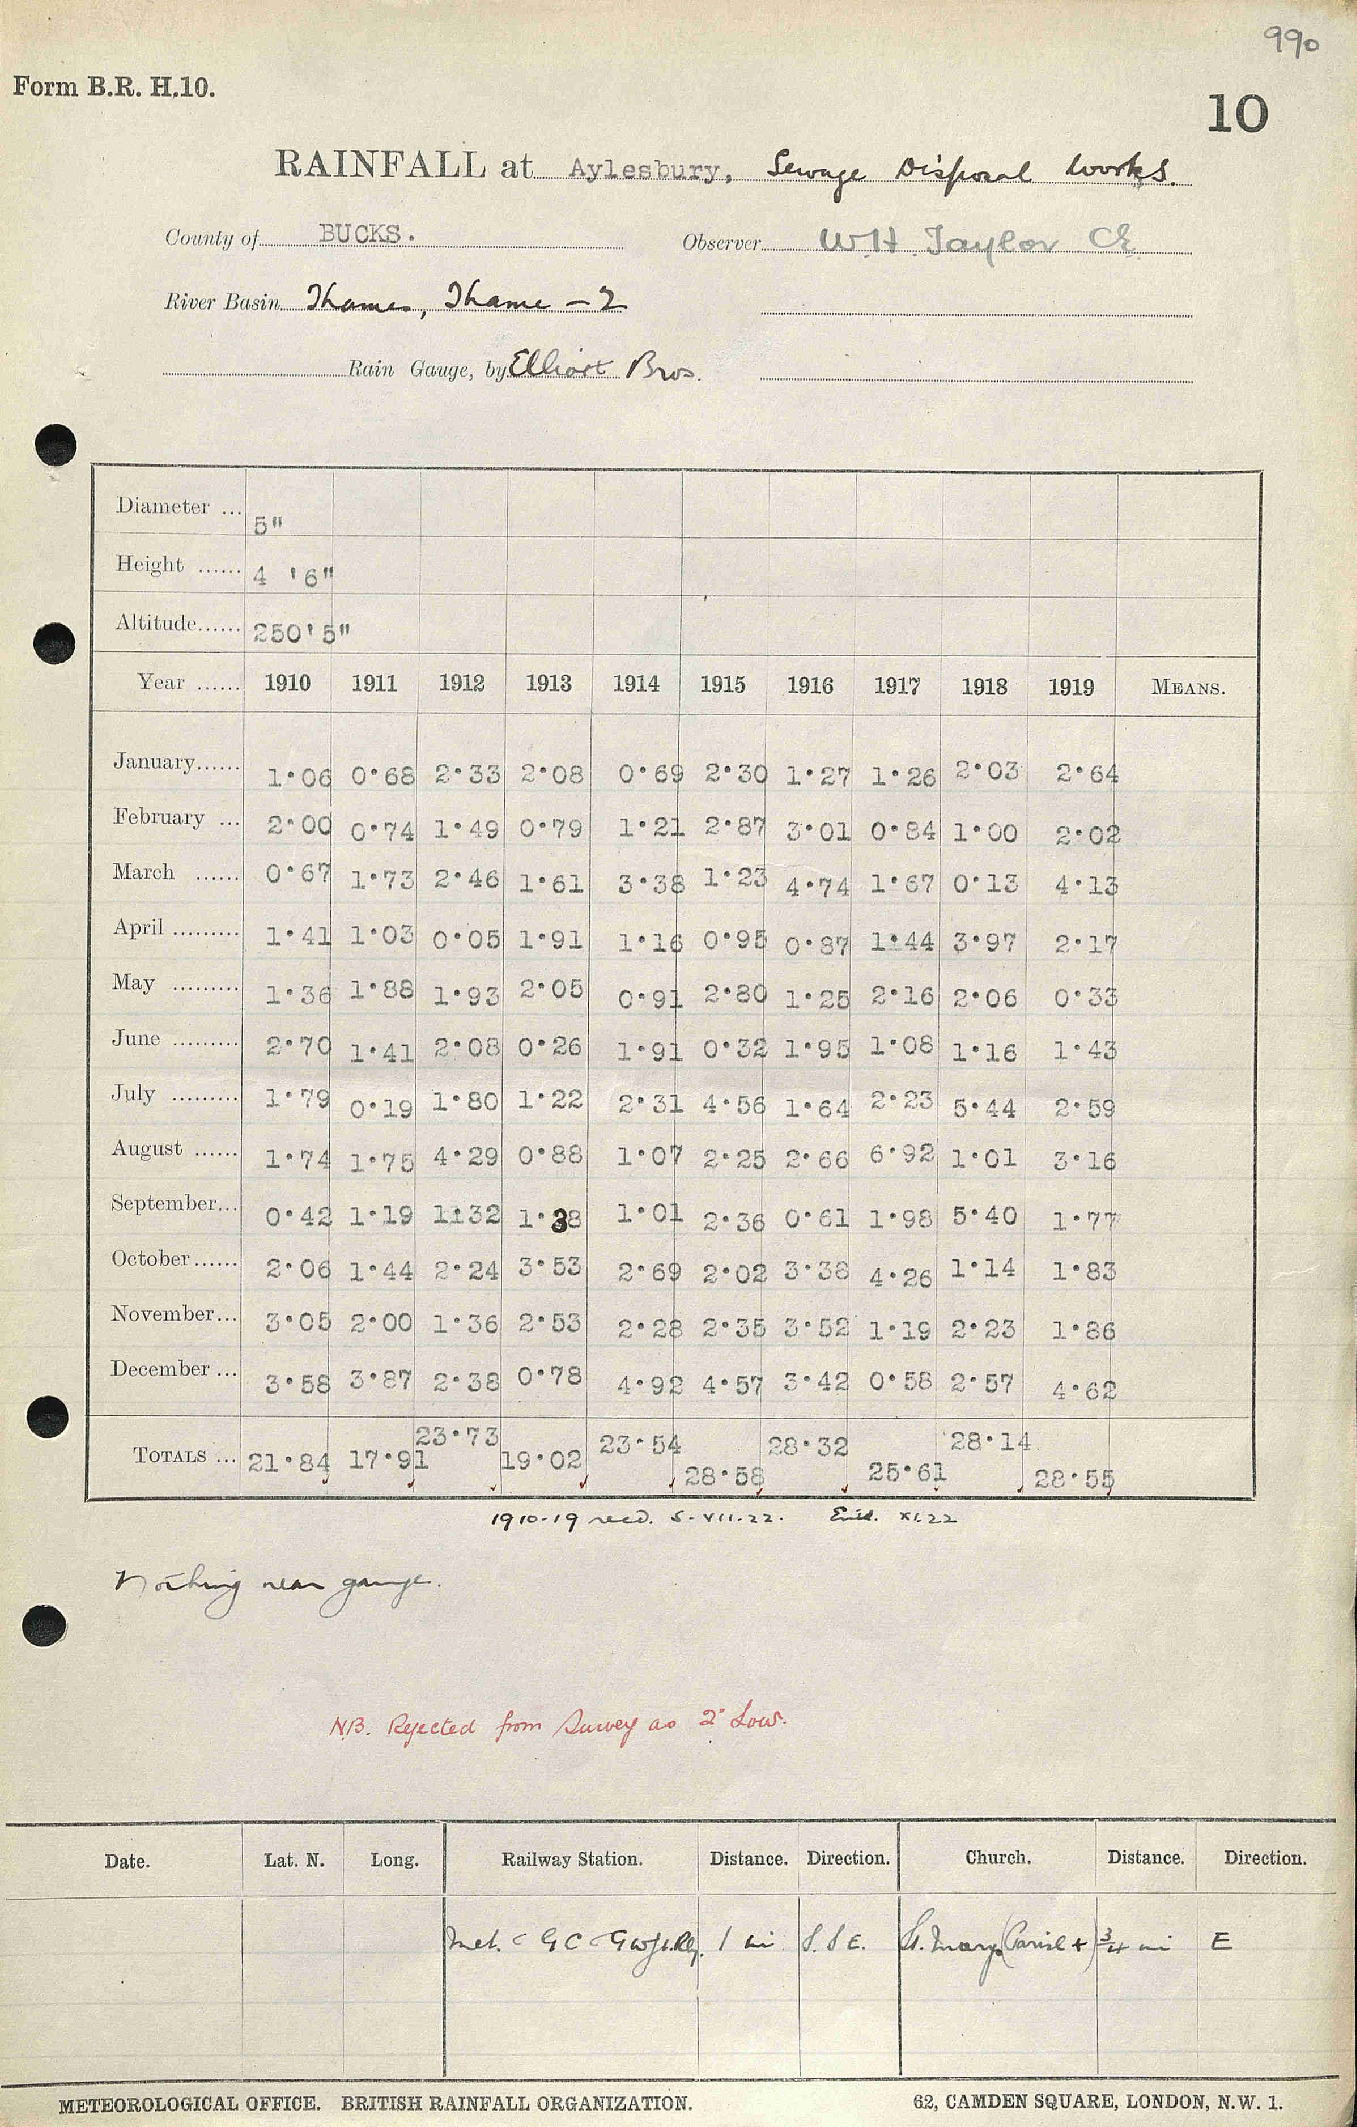 990
Form B.R. H.10.
10
RAINFALL at Aylesbury, Sewage Disposal Works.
County of BUCKS. Observer W.H. Taylor CE
River Basin Thames, Thame - 2
Rain Gauge, by Elliott Bros.
Diameter ... 5"
Height ...... 4 '6"
Altitude...... 250'5"
Year ...... 1910 1911 1912 1913 1914 1915 1916 1917 1918 1919 MEANS.
January...... 1·06 0·68 2·33 2·08 0·69 2·30 1·27 1·26 2·03 2·64
February ... 2·00 0·74 1·49 0·79 1·21 2·87 3·01 0·84 1·00 2·02
March ...... 0·67 1·73 2·46 1·61 3·38 1·23 4·74 1·67 0·13 4·13
April ......... 1·41 1·03 0·05 1·91 1·16 0·95 0·87 1·44 3·97 2·17
May ......... 1·36 1·88 1·93 2·05 0·91 2·80 1·25 2·16 2·06 0·33
June ......... 2·70 1·41 2·08 0·26 1·91 0·32 1·95 1·08 1·16 1·43
July ......... 1·79 0·19 1·80 1·22 2·31 4·56 1·64 2·23 5·44 2·59
August ...... 1·74 1·75 4·29 0·88 1·07 2·25 2·66 6·92 1·01 3·16
September... 0·42 1·19 1·32 1·38 1·01 2·36 0·61 1·98 5·40 1·77
October...... 2·06 1·44 2·24 3·53 2·69 2·02 3·38 4·26 1·14 1·83
November... 3·05 2·00 1·36 2·53 2·28 2·35 3·52 1·19 2·23 1·86
December ... 3·58 3·87 2·38 0·78 4·92 4·57 3·42 0·58 2·57 4·62
TOTALS ... 21·84 17·91 23·73 19·02 23·54 28·58 28·32 25·61 28·14 28·55
1910-19 recd. 5-VII-22. XI.22
Nothing near gauge.
NB. Rejected from Survey as 2" Low.
Date. Lat. N. Long. Railway Station. Distance. Direction. Church. Distance. Direction.
Met. GC 1 mi S.S.E. St. Mary 3/4 mi E
METEOROLOGICAL OFFICE. BRITISH RAINFALL ORGANIZATION. 62, CAMDEN SQUARE, LONDON, N.W. 1.